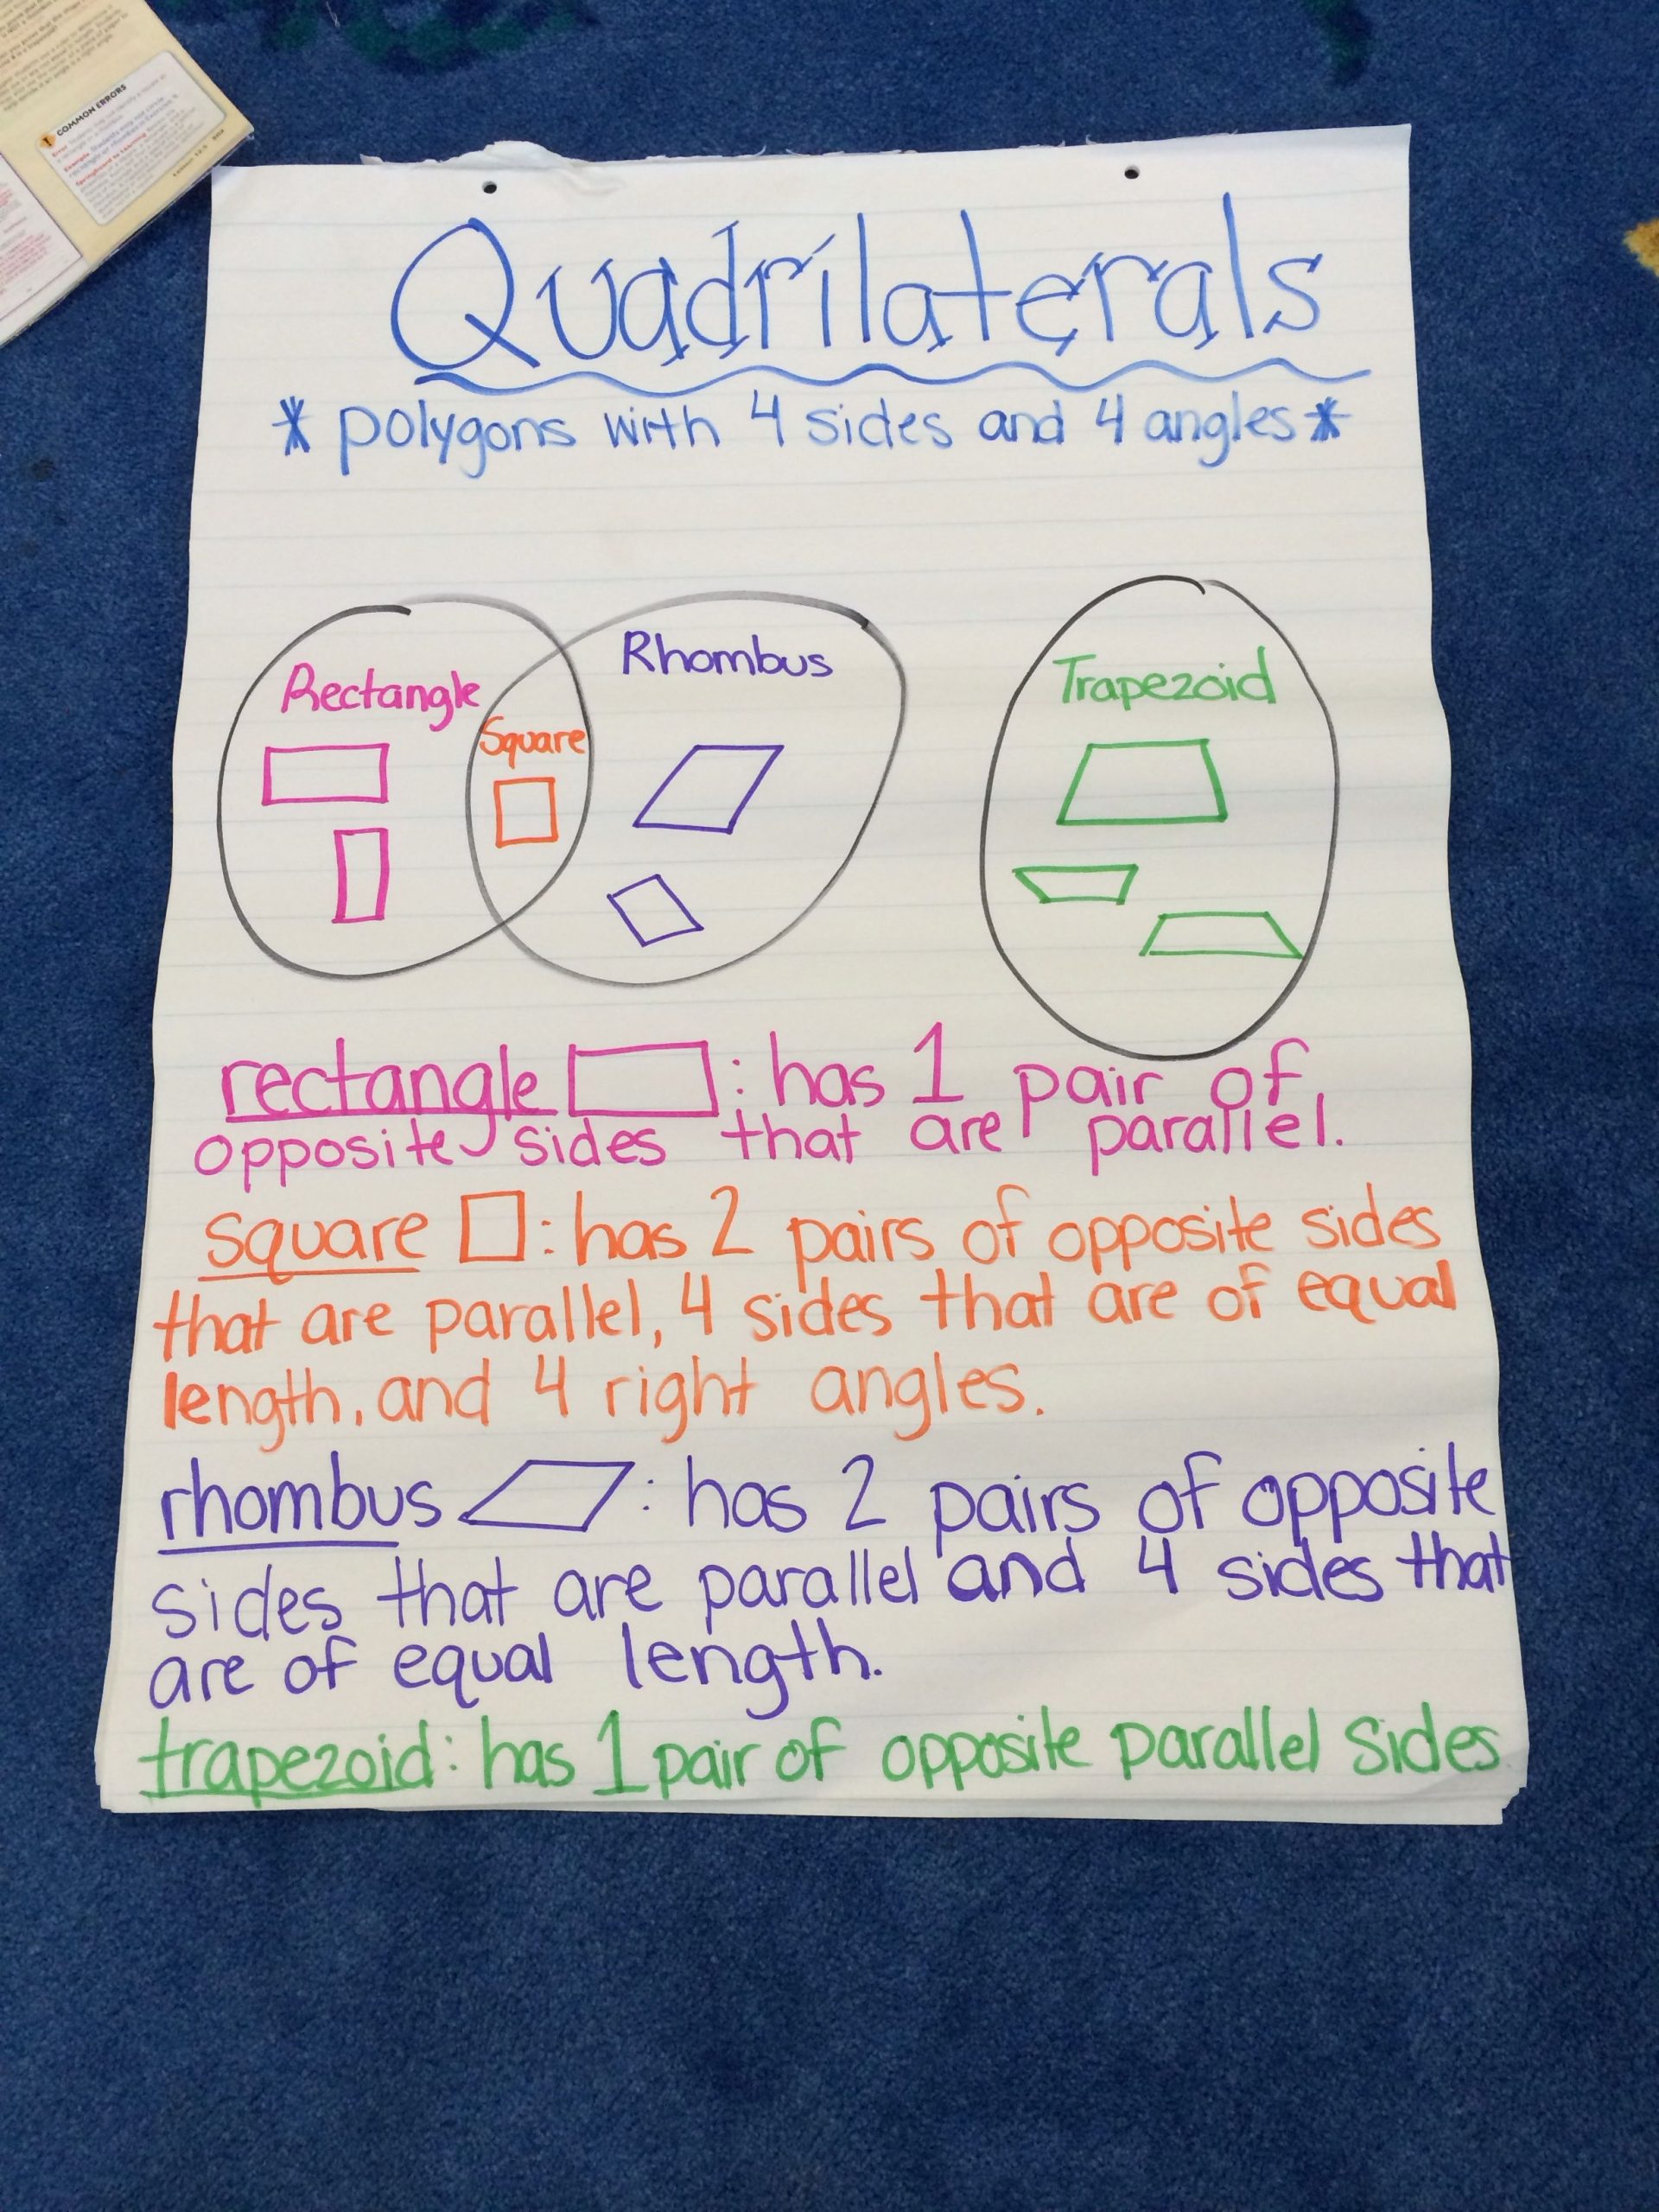 COMMON ERRORS
Quadrilaterals
* polygons with 4 sides and 4 angles *
Rectangle
Square
Rhombus
Trapezoid
rectangle : has 1 pair of
opposite sides that are parallel.
square : has 2 pairs of opposite sides
that are parallel, 4 sides that are of equal
length, and 4 right angles.
rhombus : has 2 pairs of opposite
sides that are parallel and 4 sides that
are of equal length.
trapezoid: has 1 pair of opposite parallel sides